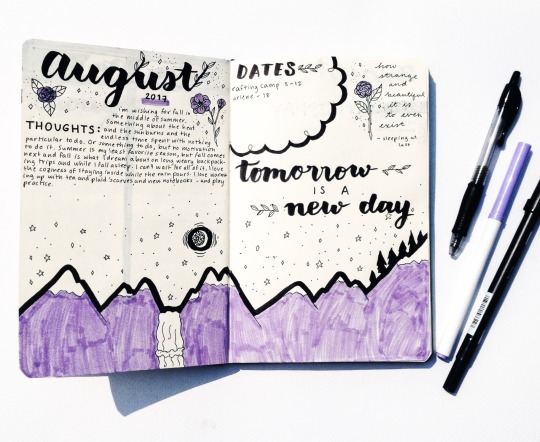 august
2017
i'm wishing for fall in
the middle of summer.
something about the heat
THOUGHTS: and the sunburns and the
endless time spent with nothing
particular to do. Or something to do, but no motivation
to do it. Summer is my least favorite season, but fall comes
next and fall is what I dream about on long weary backpack-
ing trips and while I fall asleep. I can't wait for all of it. I love
the coziness of staying inside while the rain pours. I love
ing up with tea and plaid scarves and new notebooks - and play
practice.
DATES
crafting camp 8-12
- 18
how
strange
and
beautiful
it is
to
even
exist
- sleeping at
last
tomorrow
IS A
new day